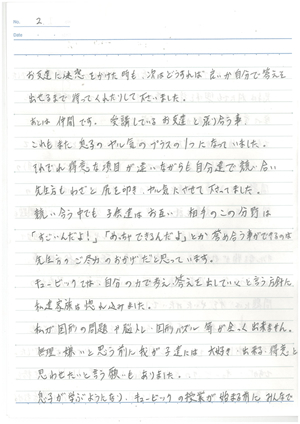 No. 2
Date
お友達に迷惑をかけた時も、次はどうすれば良いか自分で答えを
出せるまで待ってくれたりして下さいました。
あとは仲間です。受講しているお友達と張り合う事、
これもまた息子のやる気のプラスの1つになっていました。
それぞれ得意な項目が違いながらも自分達で競い合い
先生方もわざと 火を叩き、ヤル気にさせて下さってました。
競い合う中でも子供達はお互い、相手のこの分野は
「すごいんだよ!」「めっちゃできるんだよ」とか誉め合う事ができるのは
先生方のご尽力のおかげだと思っています。
キュービックでは、自分の力で考え答えを出していくと言う方針に
私達家族は惚れ込みました。
私が図形の問題や脳トレ・図形パズル等が全く出来ません。
無理・嫌いと思う前に我が子達には大好き・出来る・得意と
思わせたいと言う願いもありました。
息子が学ぶようになり、キュービックの授業が始まる前に、みんなで